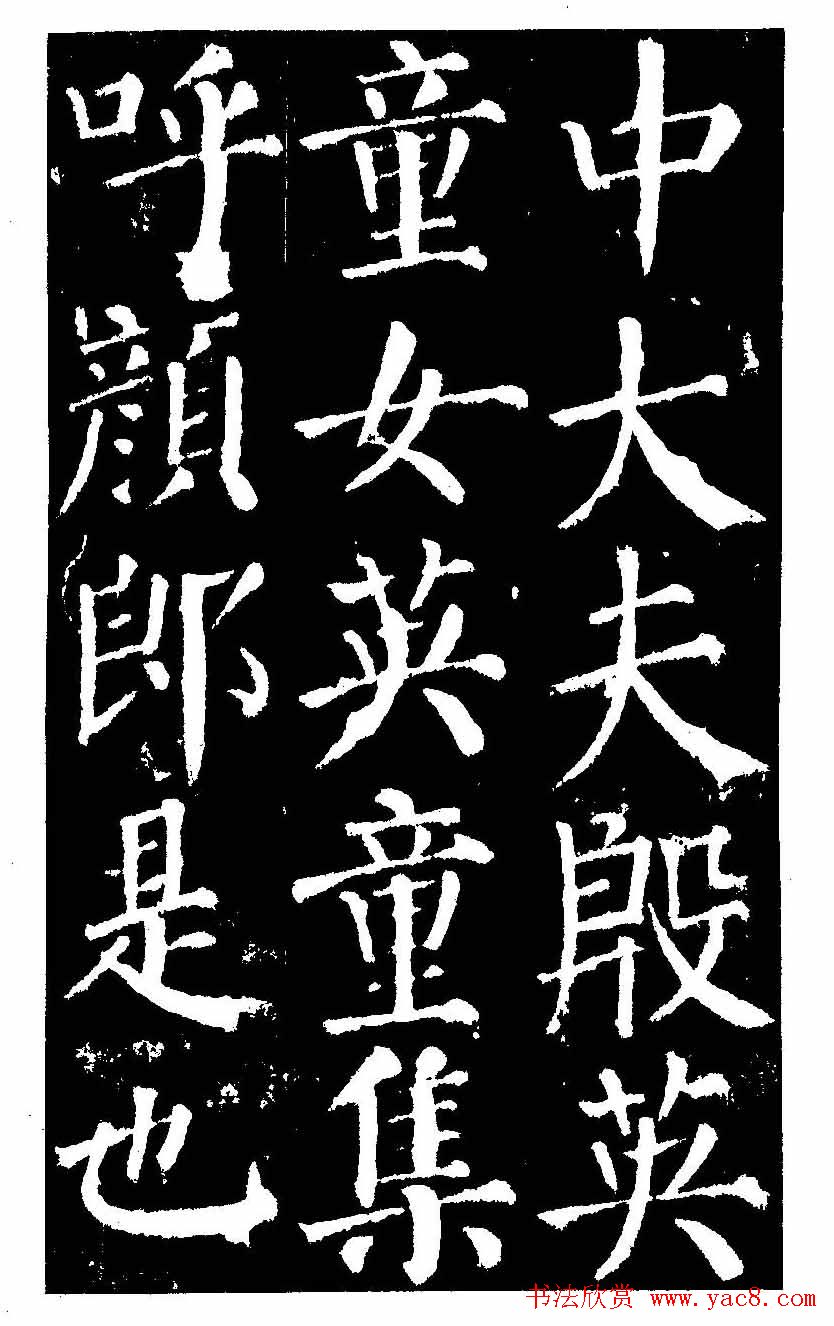 中大夫殷英
童女英童集
呼顏郎是也
书法欣赏 www.yac8.com